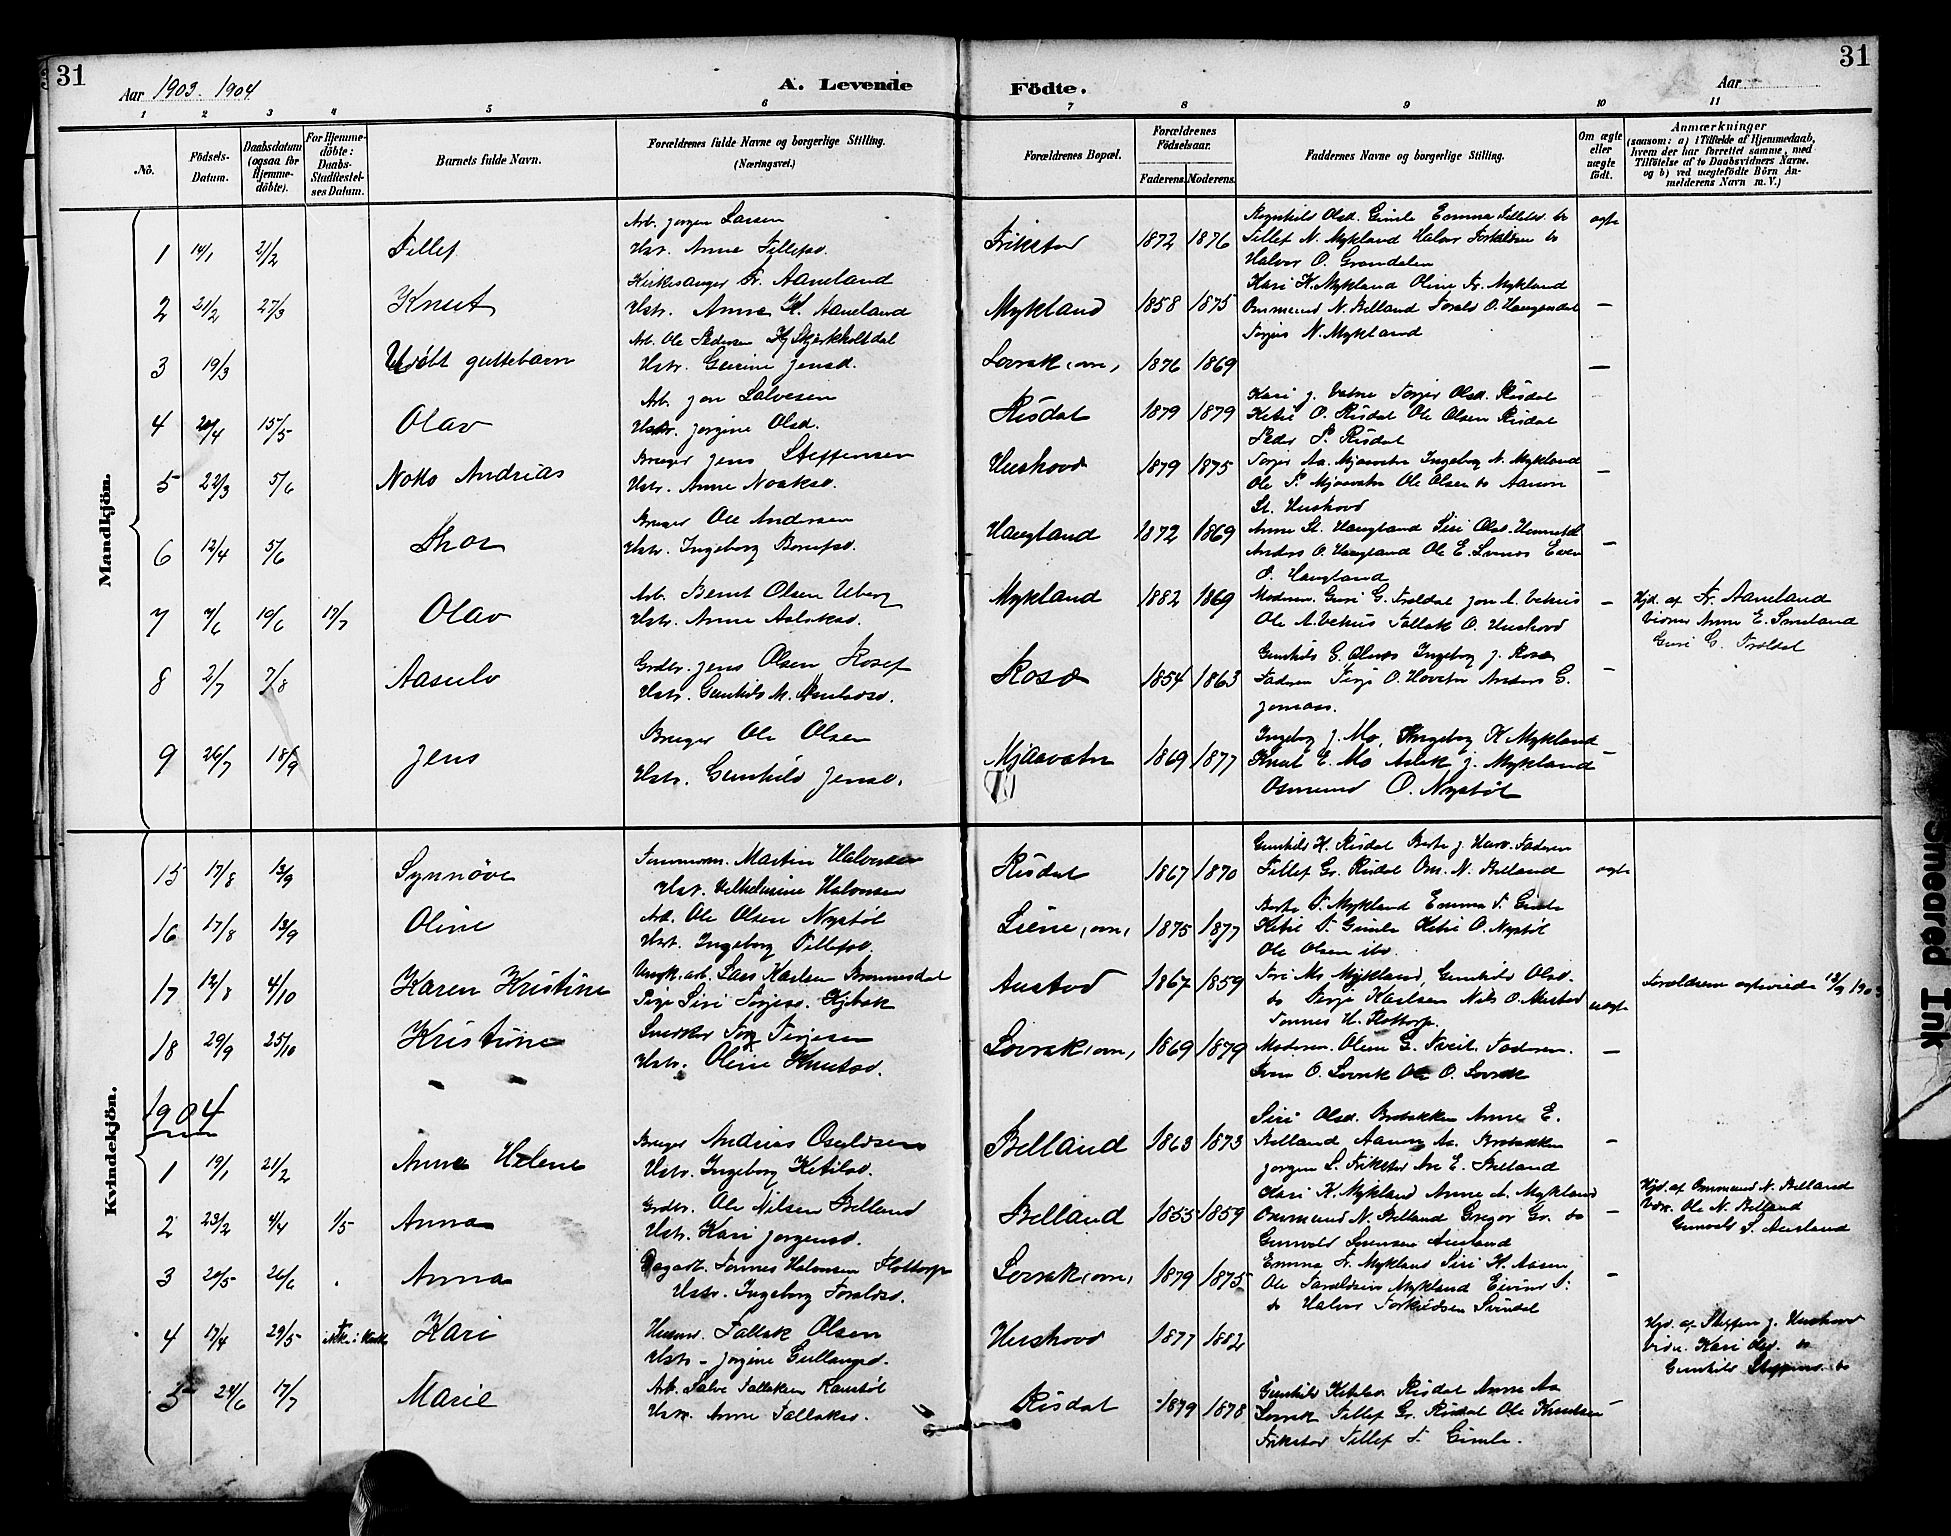 31
Aar 1903. 1904
A. Levende Födte.
Aar
31
1 2 3 4 5 6 7 8 9 10 11
No.
Födsels-Datum.
Daabsdatum (ogsaa for Hjemme-döbte).
For Hjemme-döbte: Daabs-Stadfestel-ses Datum.
Barnets fulde Navn.
Forældrenes fulde Navne og borgerlige Stilling. (Næringsvei.)
Forældrenes Bopæl.
Forældrenes Födselsaar.
Faderens. Moderens.
Faddernes Navne og borgerlige Stilling.
Om ægte eller uægte födt.
Anmærkninger
(saasom: a) i Tilfælde af Hjemmedaab, hvem der har forrettet samme, med Tilföielse af to Daabsvidners Navne. og b) ved uægtefödte Börn An-melderens Navn m. V.)
Mandkjön.
1 14/1 21/2 Tellef
Arb. Jørgen Larsen
Hstr. Anne Tellefsd.
Frikstad 1872 1876
Ragnhild Olsd. Gimle Emma Tellefsd. do
Tellef N. Mykland Halvor Torkildsen do
Halvor O. Grøndalen
ægte
2 21/2 27/3 Knut
Kirkesanger Tr. Aaneland
Hstr. Anne K. Aaneland
Mykland 1858 1875
Kari K. Mykland Oline Tr. Mykland
Ommund N. Belland Torald O. Haugendal
Torjus N. Mykland
—
3 19/3 Udøbt guttebarn
Arb. Ole Pedersen Skjerkholtdal
Hstr. Gurine Jensd.
Lovrak, om, 1876 1869
—
4 20/4 15/5 Olav
Arb. Jon Salvesen
Hstr. Jorgine Olsd.
Risdal 1879 1879
Kari J. Vatne Torjer Olsd. Risdal
Ketil O. Risdal Ole Olsen Risdal
Peder P. Risdal
5 22/3 5/6 Notto Andreas
Bruger Jens Steffensen
Hstr. Anne Noaksd.
Hushovd 1879 1875
Torjer Aa. Mjaavatn Ingeborg N. Mykland
Ole P. Mjaavatn Ole Olsen do Aanon
St. Hushovd
—
6 12/4 5/6 Thor
Bruger Ole Andersen
Hstr. Ingeborg
Haugland 1872 1869
Anne St. Haugland Siri Olsd.
Anders O. Haugland Ole E. Even
O. Haugland
—
7 7/6 10/6 17/7 Olav
Arb. Bernt Olsen Uberg
Hstr. Anne Aslaksd.
Mykland 1882 1869
Moderen. Guri G. Troldal Jon A. Vehus
Ole A. Vehus Tallak O. Hushovd
—
Hjd. af Tr. Aaneland
Vidner Anne E. Smeland
Guri G. Troldal
8 2/7 7/8 Aasulv
Grdbr. Jens Olsen Roset
Hstr. Gunhild M.
Rosø 1854 1863
Gunhild G. Ingeborg J. Rosø
Faderen Terje O. Hovatn Anders G.
Jomaas.
—
9 26/7 18/9 Jens
Bruger Ole Olsen
Hstr. Gunhild Jensd.
Mjaavatn 1869 1877
Ingebog J. Mo, Ingeborg K. Mykland
Knut E. Mo Aslak J. Mykland
Osmund O. Nystøl
—
Kvindekjön.
15 17/8 13/9 Synnøve
Tømmerm. Martin Halvorsen
Hst. Vilhelmine Halvorsen
Risdal 1867 1870
Gunhild H. Risdal Berte J. Faderen
Tellef Gr. Risdal Om. N. Belland
ægte
16 17/8 13/9 Oline
Arb. Ole Olsen Nystøl
Hst. Ingeborg Tellefsd.
Liene, om, 1875 1877
Berte T. Mykland Emma T. Gimle
Ketil T. Gimle Ketil O. Nystøl
Ole Olsen ibd.
17 12/8 4/10 Karen Kristine
Ungk. arb. Lars Karlsen Brømnesdal
Pige Siri Torjesd.
Austad 1867 1859
Tori M. Mykland, Gunhild Olsd.
do Terje Karlsen Nils O. Austad
Tønnes H. Flottorp.
uægte
Forældrene ægteviede 13/9 1903
18 29/9 25/10 Kristine
Snedker Torj Terjesen
Hstr. Oline Knutsd.
Lovrak, om, 1869 1879
Moderen. Oline G. Tveit. Faderen.
O. Lovrak Ole O. Lovrak
—
1904
1 19/1 21/2 Anne Helene
Bruger Andreas Osuldsen
Hstr. Ingeborg Ketilsd.
Belland 1863 1873
Siri Olsd. Brobakken Anne E.
Belland Aanon Aa. Brobakken
Jorgen L. Frikstad Are E. Belland
—
2 23/2 4/4 1/5 Anna
Grdbr. Ole Nilsen Belland
Hstr. Kari Jorgensd.
Belland 1855 1859
Kari K. Mykland Anne A. Mykland
Ommund N. Belland Gregor Gr. do
Gunvald Sørensen Ausland
—
Hjd. af Ommund N. Belland
Vidn. Ole N. Belland
Gunvald S. Ausland
3 20/5 26/6 Anna
Dagarb. Tønnes Halvorsen Flottorp
Hstr. Ingeborg Toraldsd.
Lovrak, om, 1879 1875
Emma Tr. Mykland Siri K. Aasen
Ole Taraldsen Mykland Eivind T.
do Halvor Torkildsen Svindal
—
4 17/4 29/5 Kari
Husmd. Tallak Olsen
Hstr. Jorgine Gullaugsd.
Hushovd 1877 1882
Hjd. af Steffen J. Hushovd
Vidn. Kari Olsd. do
Gunhild do
5 24/6 17/7 Marie
Arb. Salve Tallaksen Ramstøl
Hstr. Anne Tallaksd.
Risdal 1879 1878
Gunhild Ketilsd. Risdal Anne Aa
Lovrak Tellef Gr. Risdal Ole Knutsen
Frikstad Tellef T. Gimle.
—
Smeared Ink